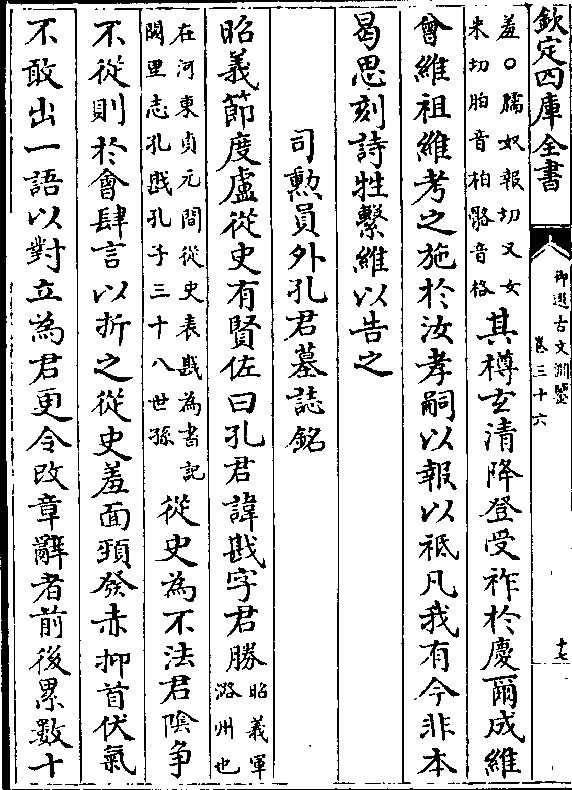 欽定四庫全書
御選古文淵鑒
卷三十六
十七
羞〇臑奴報切又女
米切胉音柏骼音格
其樽玄清降登受祚於慶爾成維
曾維祖維考之施於汝孝嗣以報以祗凡我有今非本
曷思刻詩牲繫維以告之
司勲員外孔君墓誌銘
昭義節度盧從史有賢佐曰孔君諱戡字君勝
昭義軍
潞州也
在河東貞元間從史表戡為書記
闕里志孔戡孔子三十八世孫
從史為不法君隂争
不從則於會肆言以折之從史羞面頸發赤抑首伏氣
不敢出一語以對立為君更令改章辭者前後累數十